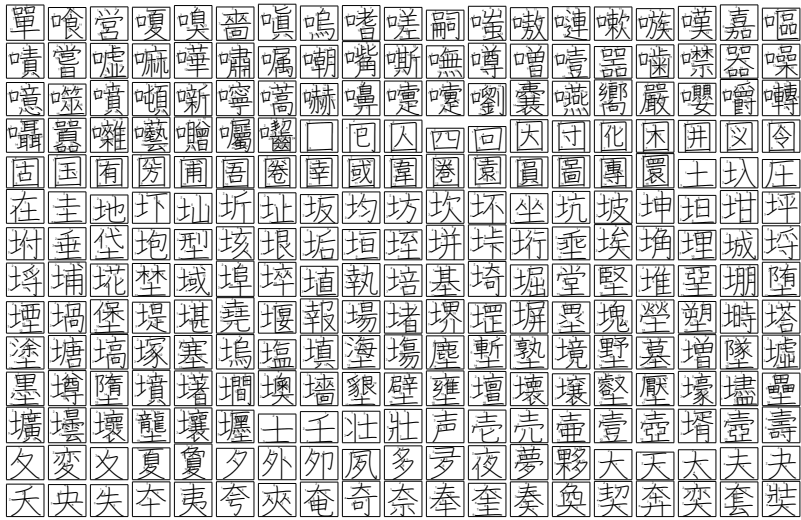 單 喰 営 嗄 嗅 嗇 嗔 嗚 嗜 嗟 嗣 嗤 嗷 嗹 嗽 嗾 嘆 嘉 嘔
嘖 嘗 嘘 嘛 嘩 嘯 嘱 嘲 嘴 嘶 嘸 噂 噌 噎 噐 噛 噤 器 噪
噫 噬 噴 噸 噺 嚀 嚆 嚇 嚊 嚔 嚏 嚠 嚢 嚥 嚮 嚴 嚶 嚼 囀
囁 囂 囃 囈 囎 囑 囓 囗 囘 囚 四 回 因 団 囮 困 囲 図 囹
固 国 囿 圀 圃 圄 圈 圉 國 圍 圏 園 圓 圖 團 圜 土 圦 圧
在 圭 地 圷 圸 圻 址 坂 均 坊 坎 坏 坐 坑 坡 坤 坦 坩 坪
坿 垂 垈 垉 型 垓 垠 垢 垣 垤 垪 垰 垳 埀 埃 埆 埋 城 埒
埓 埔 埖 埜 域 埠 埣 埴 執 培 基 埼 堀 堂 堅 堆 堊 堋 堕
堙 堝 堡 堤 堪 堯 堰 報 場 堵 堺 堽 塀 塁 塊 塋 塑 塒 塔
塗 塘 塙 塚 塞 塢 塩 填 塰 塲 塵 塹 塾 境 墅 墓 増 墜 墟
墨 墫 墮 墳 墸 墹 墺 墻 墾 壁 壅 壇 壊 壌 壑 壓 壕 壗 壘
壙 壜 壞 壟 壤 壥 士 壬 壮 壯 声 壱 売 壷 壹 壺 壻 壼 壽
夂 変 夊 夏 夐 夕 外 夘 夙 多 夛 夜 夢 夥 大 天 太 夫 夬
夭 央 失 夲 夷 夸 夾 奄 奇 奈 奉 奎 奏 奐 契 奔 奕 套 奘